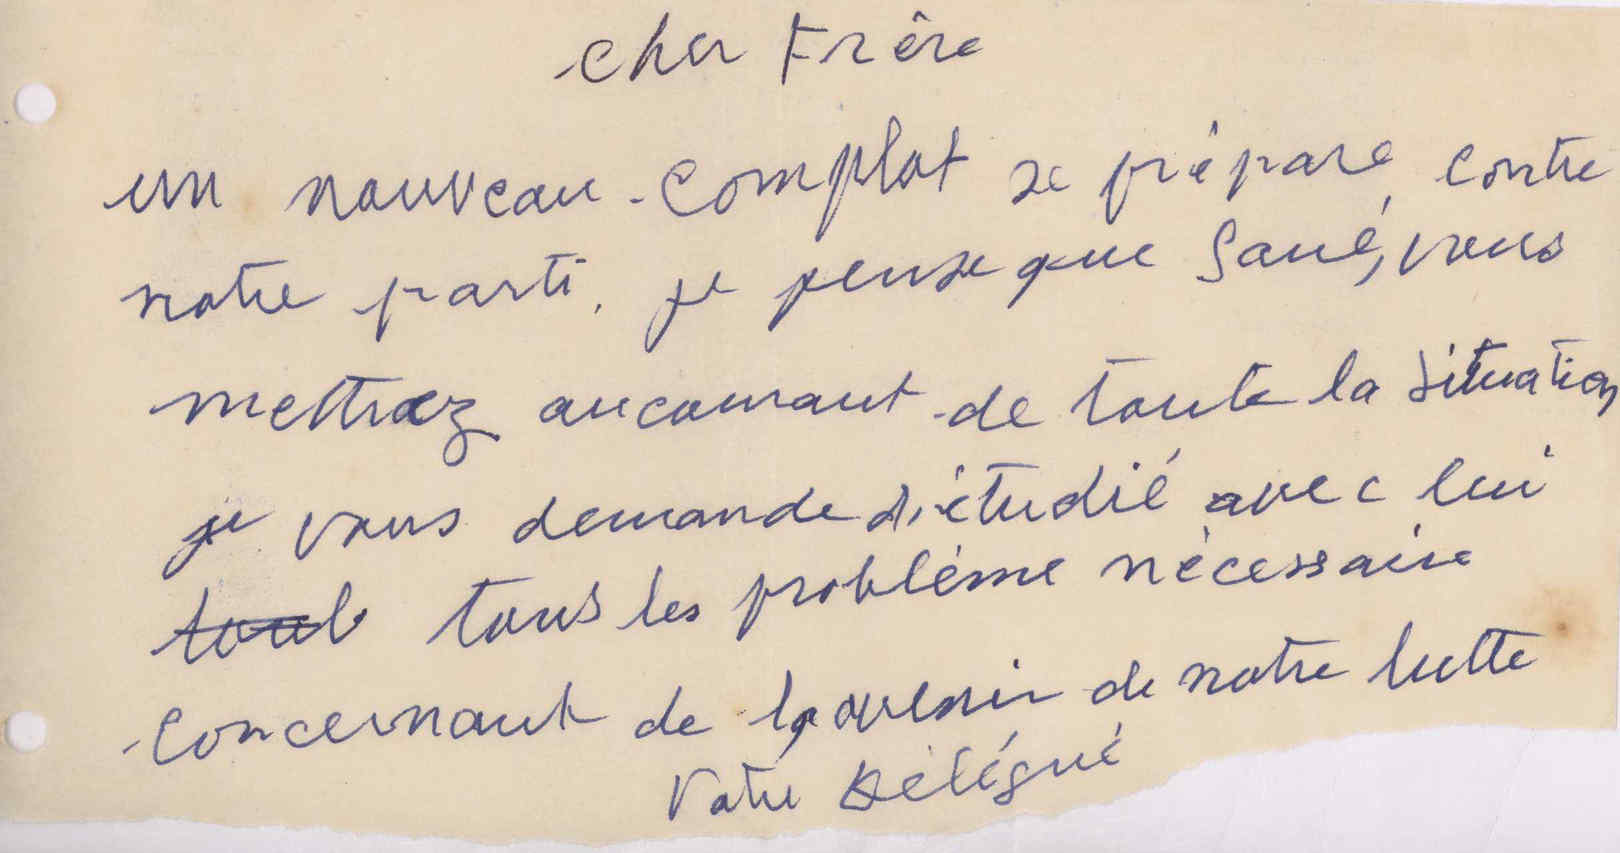 Cher Frère
un nouveau complot se prépare contre
notre parti. je pense que Sané, vous
mettrez au courant de toute la situation
je vous demande d'étudié avec lui
tous les problème nécessaire
concernant de l'avenir de notre lutte
Votre Délégué